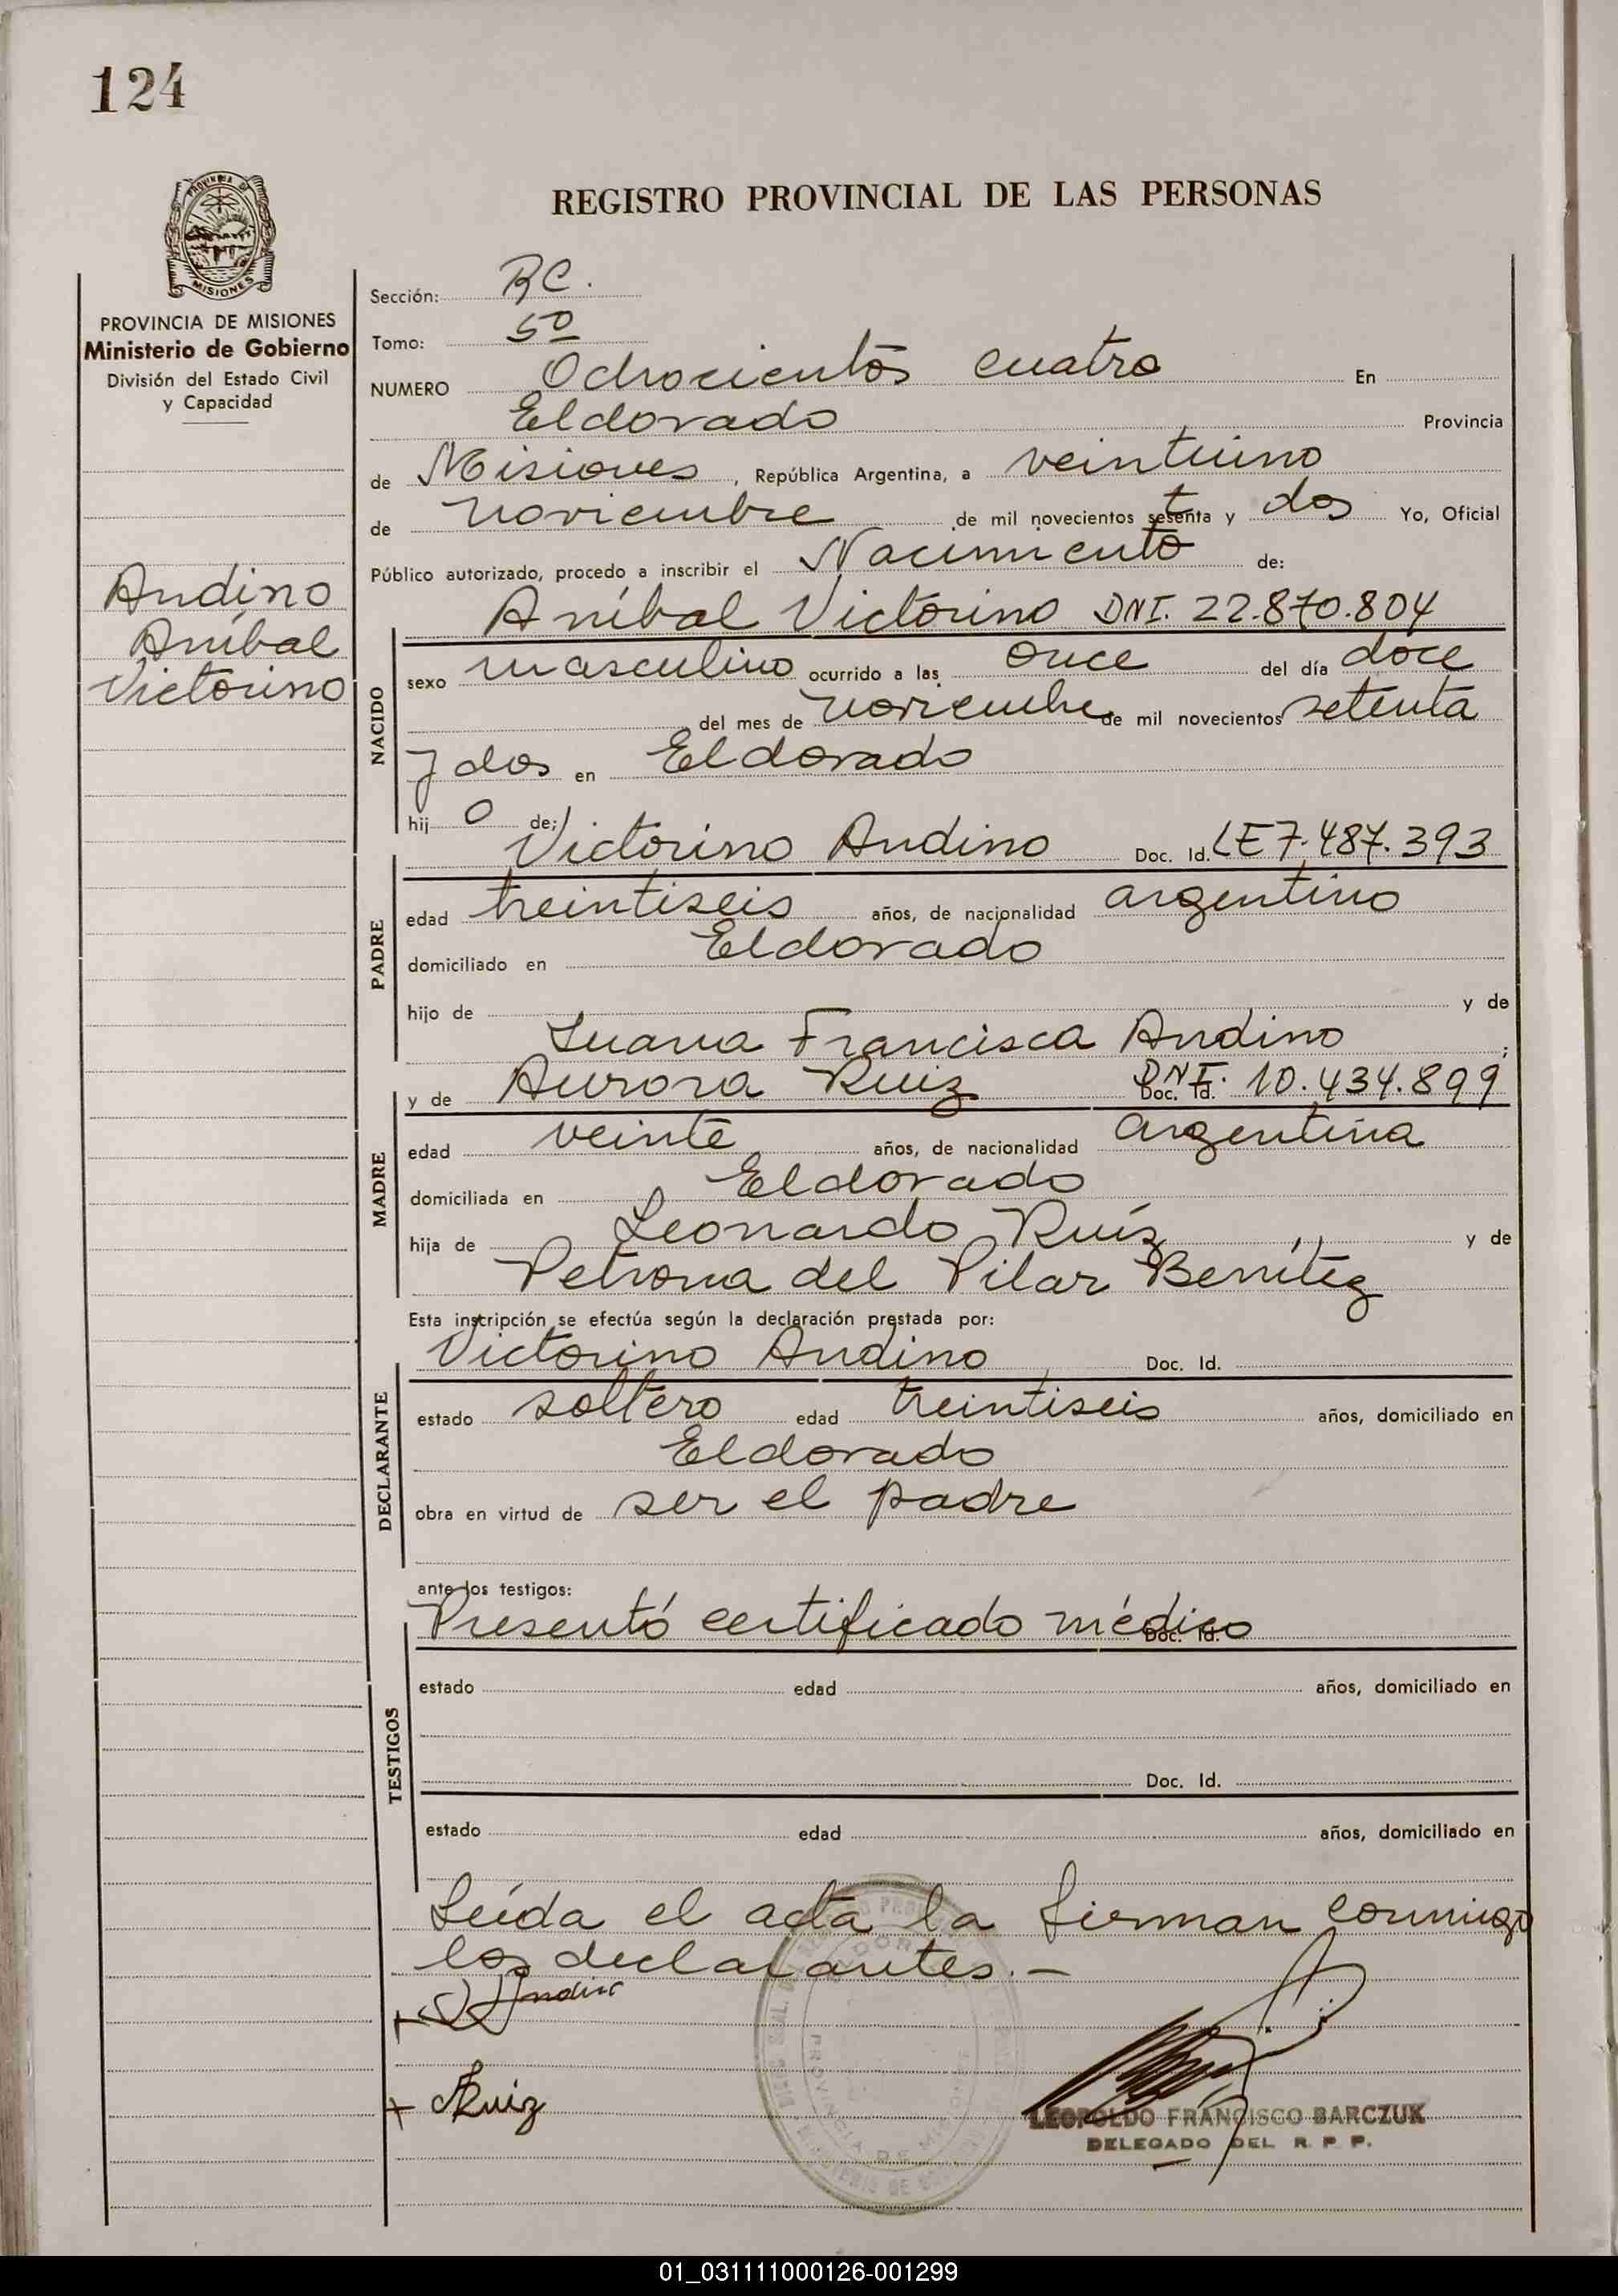 124
PROVINCIA DE
MISIONES
PROVINCIA DE MISIONES
Ministerio de Gobierno
División del Estado Civil
y Capacidad
Andino
Aníbal
Victorino
REGISTRO PROVINCIAL DE LAS PERSONAS
Sección: RC.
Tomo: 5º
NUMERO Ochocientos cuatro En
Eldorado Provincia
de Misiones, República Argentina, a veintiuno
de noviembre de mil novecientos setenta y dos Yo, Oficial
Público autorizado, procedo a inscribir el Nacimiento de:
Aníbal Victorino DNI. 22.870.804
NACIDO
sexo masculino ocurrido a las once del día doce
del mes de noviembre de mil novecientos setenta
y dos en Eldorado
hij o de:
Victorino Andino Doc. Id. LE 7.487.393
PADRE
edad treintiseis años, de nacionalidad argentino
domiciliado en Eldorado
hijo de y de
Juana Francisca Andino ;
y de Aurora Ruiz Doc. Id. DNI. 10.434.899
MADRE
edad veinte años, de nacionalidad argentina
domiciliada en Eldorado
hija de Leonardo Ruíz y de
Petrona del Pilar Benítez
Esta inscripción se efectúa según la declaración prestada por:
Victorino Andino Doc. Id.
DECLARANTE
estado soltero edad treintiseis años, domiciliado en
Eldorado
obra en virtud de ser el padre
ante los testigos:
Presentó certificado médico Doc. Id.
TESTIGOS
estado edad años, domiciliado en
Doc. Id.
estado edad años, domiciliado en
Leída el acta la firman conmigo
los declarantes.-
Andino
ARuiz
LEOPOLDO FRANCISCO BARCZUK
DELEGADO DEL R. P. P.
01_031111000126-001299